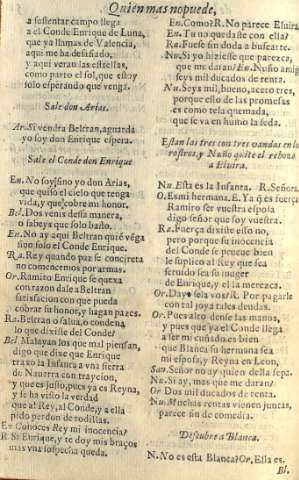 Quien mas no puede,
a sustentar campo llega
a el Conde Enrique de Luna,
que ya llamas de Valencia,
aqui me ha desafiado,
y aqui veran las estrellas,
como parto el sol, que estoy
solo esperando que venga.
Sale don Arias.
Ar. Si vendra Beltran, aguarda
yo soy don Enrique espera.
Sale el Conde don Enrique
En. No soy sino yo don Arias,
que quiso el cielo que tenga
vida, y que cobre mi honor.
Bel. Dos venis dessa manera,
o sabeys que solo baño.
En. No ay aqui Beltran quiē vēga
sino solo el Conde Enrique.
Ra. Rey quando paz se concreta
no comencemos por armas.
Or. Ramiro Enrique se quexa
con razon dale a Beltran
satisfacion con que pueda
cobrar su honor, y hagan pazes.
Ra. Beltran o salua, o condena
lo que dixiste del Conde?
Be. Malayan los que mal piensan,
digo que dixe que Enrique
traxo la Infanta a vna sierra
de Nauarra con traycion,
y que es justo, pues ya es Reyna,
y se ha visto la verdad
que al Rey, al Conde, y a ella
pido perdon de rodillas.
En Conoces Rey mi inocencia?
R. Si Enrique, y te doy mis braços
mas vna sospecha queda.
En. Como? R. No parece Eluira.
En. Tu no quedaste con ella?
Ra. Fuesse sin duda a buscarte.
Nu. Si yo hiziesse que parezca,
que me daran? En. Nuño amigo
seys mil ducados de renta.
Nu. Seys mil, bueno, aceto tres,
porque esso de las promessas
es como tela quemada,
que se va en humo la seda.
Estan las tres con tres vandas en los
rostros, y Nuño quite el rebozo
a Eluira.
Nu. Esta es la Infanta. R. Señora,
O. Es mi hermana, E. Ya q̄ es fuerça
Ramiro ser vuestra esposa
digo señor que soy vuestra.
Ra. Fuerça dixiste esso no,
pero porque su inocencia
del Conde se prueue bien
le suplico al Rey que sea
seruido sea su muger
de Enrique, y el la merezca.
Or. Day sela vos? R. Por pagarle
con tal joya tales deudas
Or. Pues alto desele las manos,
y pues que ya el Conde llega
a ser mi cuñado es bien
que Blanca su hermana sea
mi esposa, y Reyna en Leon,
San. Señor no ay quien della sepa.
Nu. Si ay, mas que me daran?
Or Dos mil ducados de renta.
Nu. Muchas rentas vienen juntas,
parece fin de comedia.
Descubre a Blanca.
N. No es esta Blanca? Or, Ella es.
Bl.